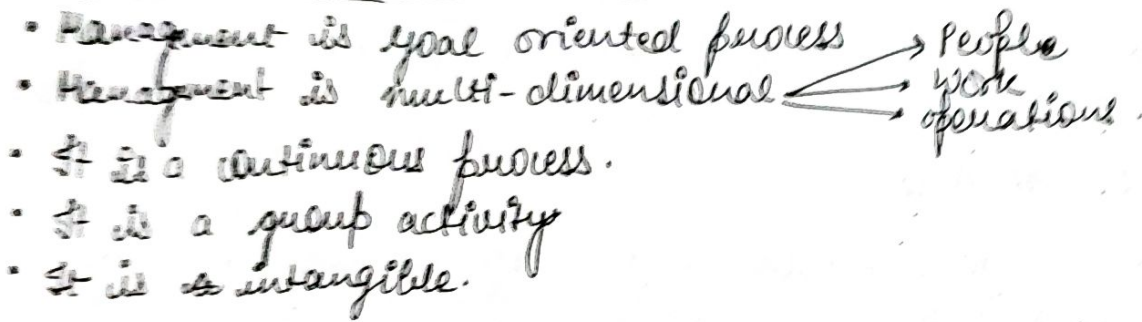 • Management is goal oriented process
• Management is multi-dimensional → People
→ work
→ operations.
• It is a continuous process.
• It is a group activity
• It is intangible.